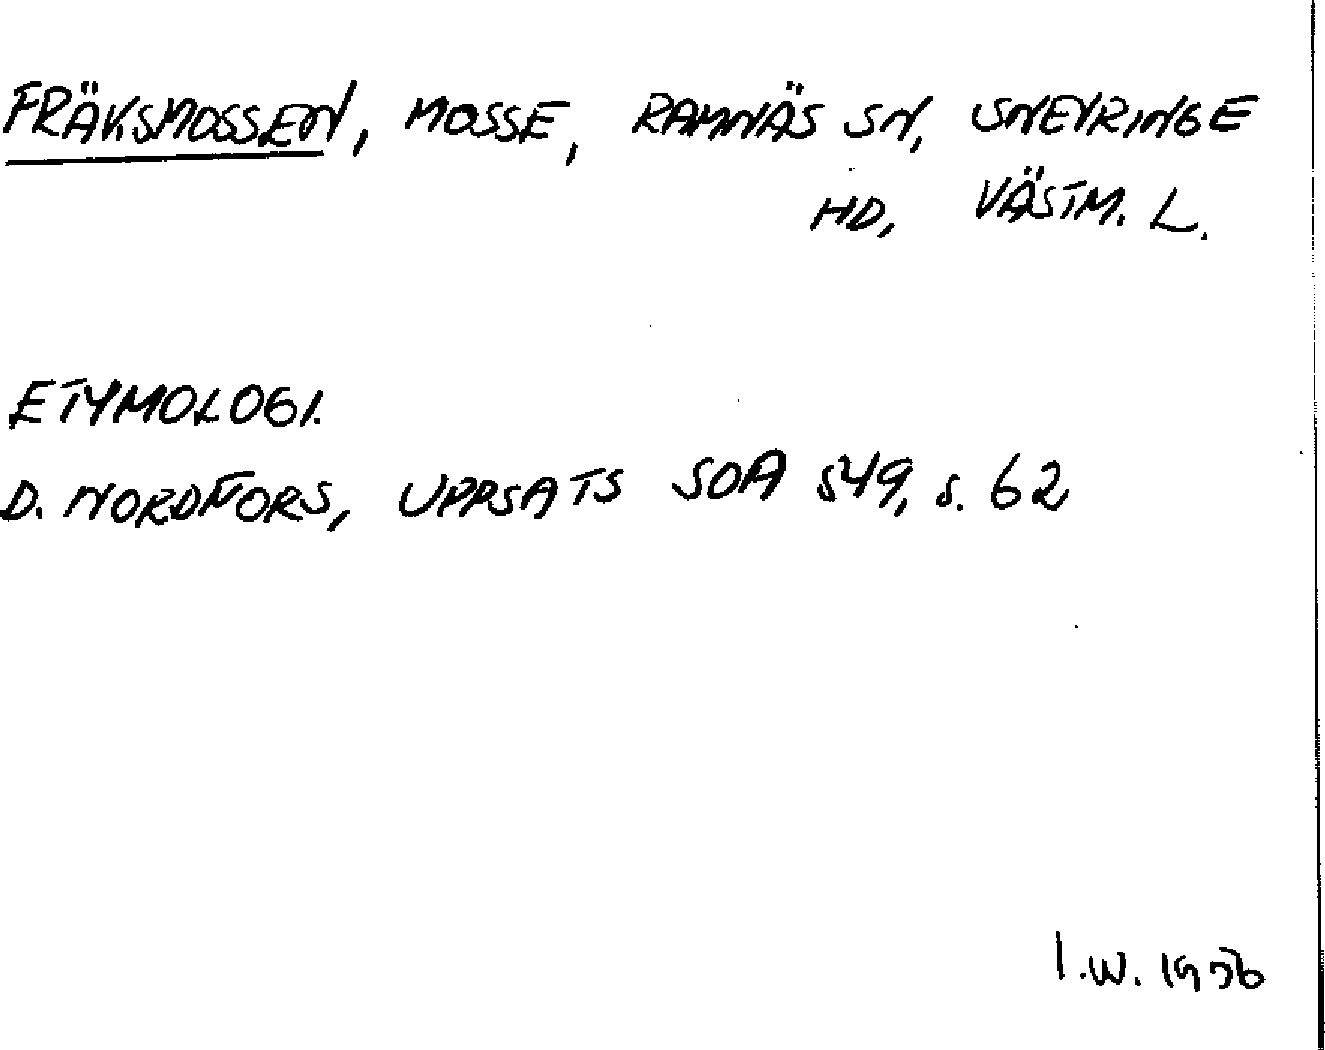 FRÄKSMOSSEN, MOSSE, RAMNÄS SN, SNEVRINGE
HD, VÄSTM. L.
ETYMOLOGI.
D. NORDNORS, UPPSATS SOA 549, s. 62
I.W. 1956